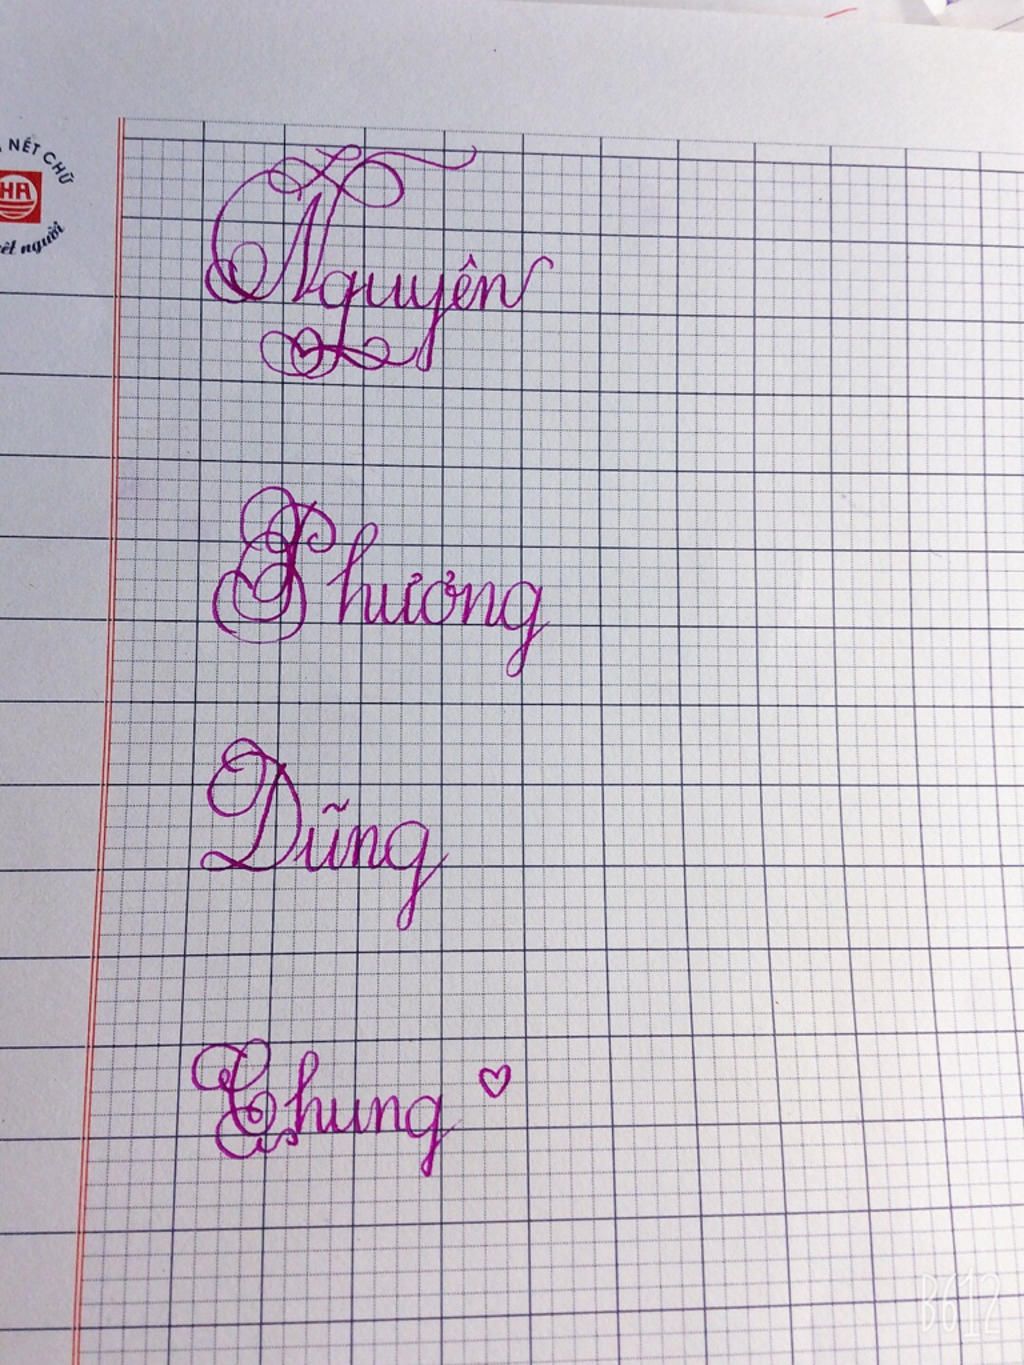 NẾT CHỮ
HA
nết người
Nguyên
Phương
Dũng
Chung ♡
B612